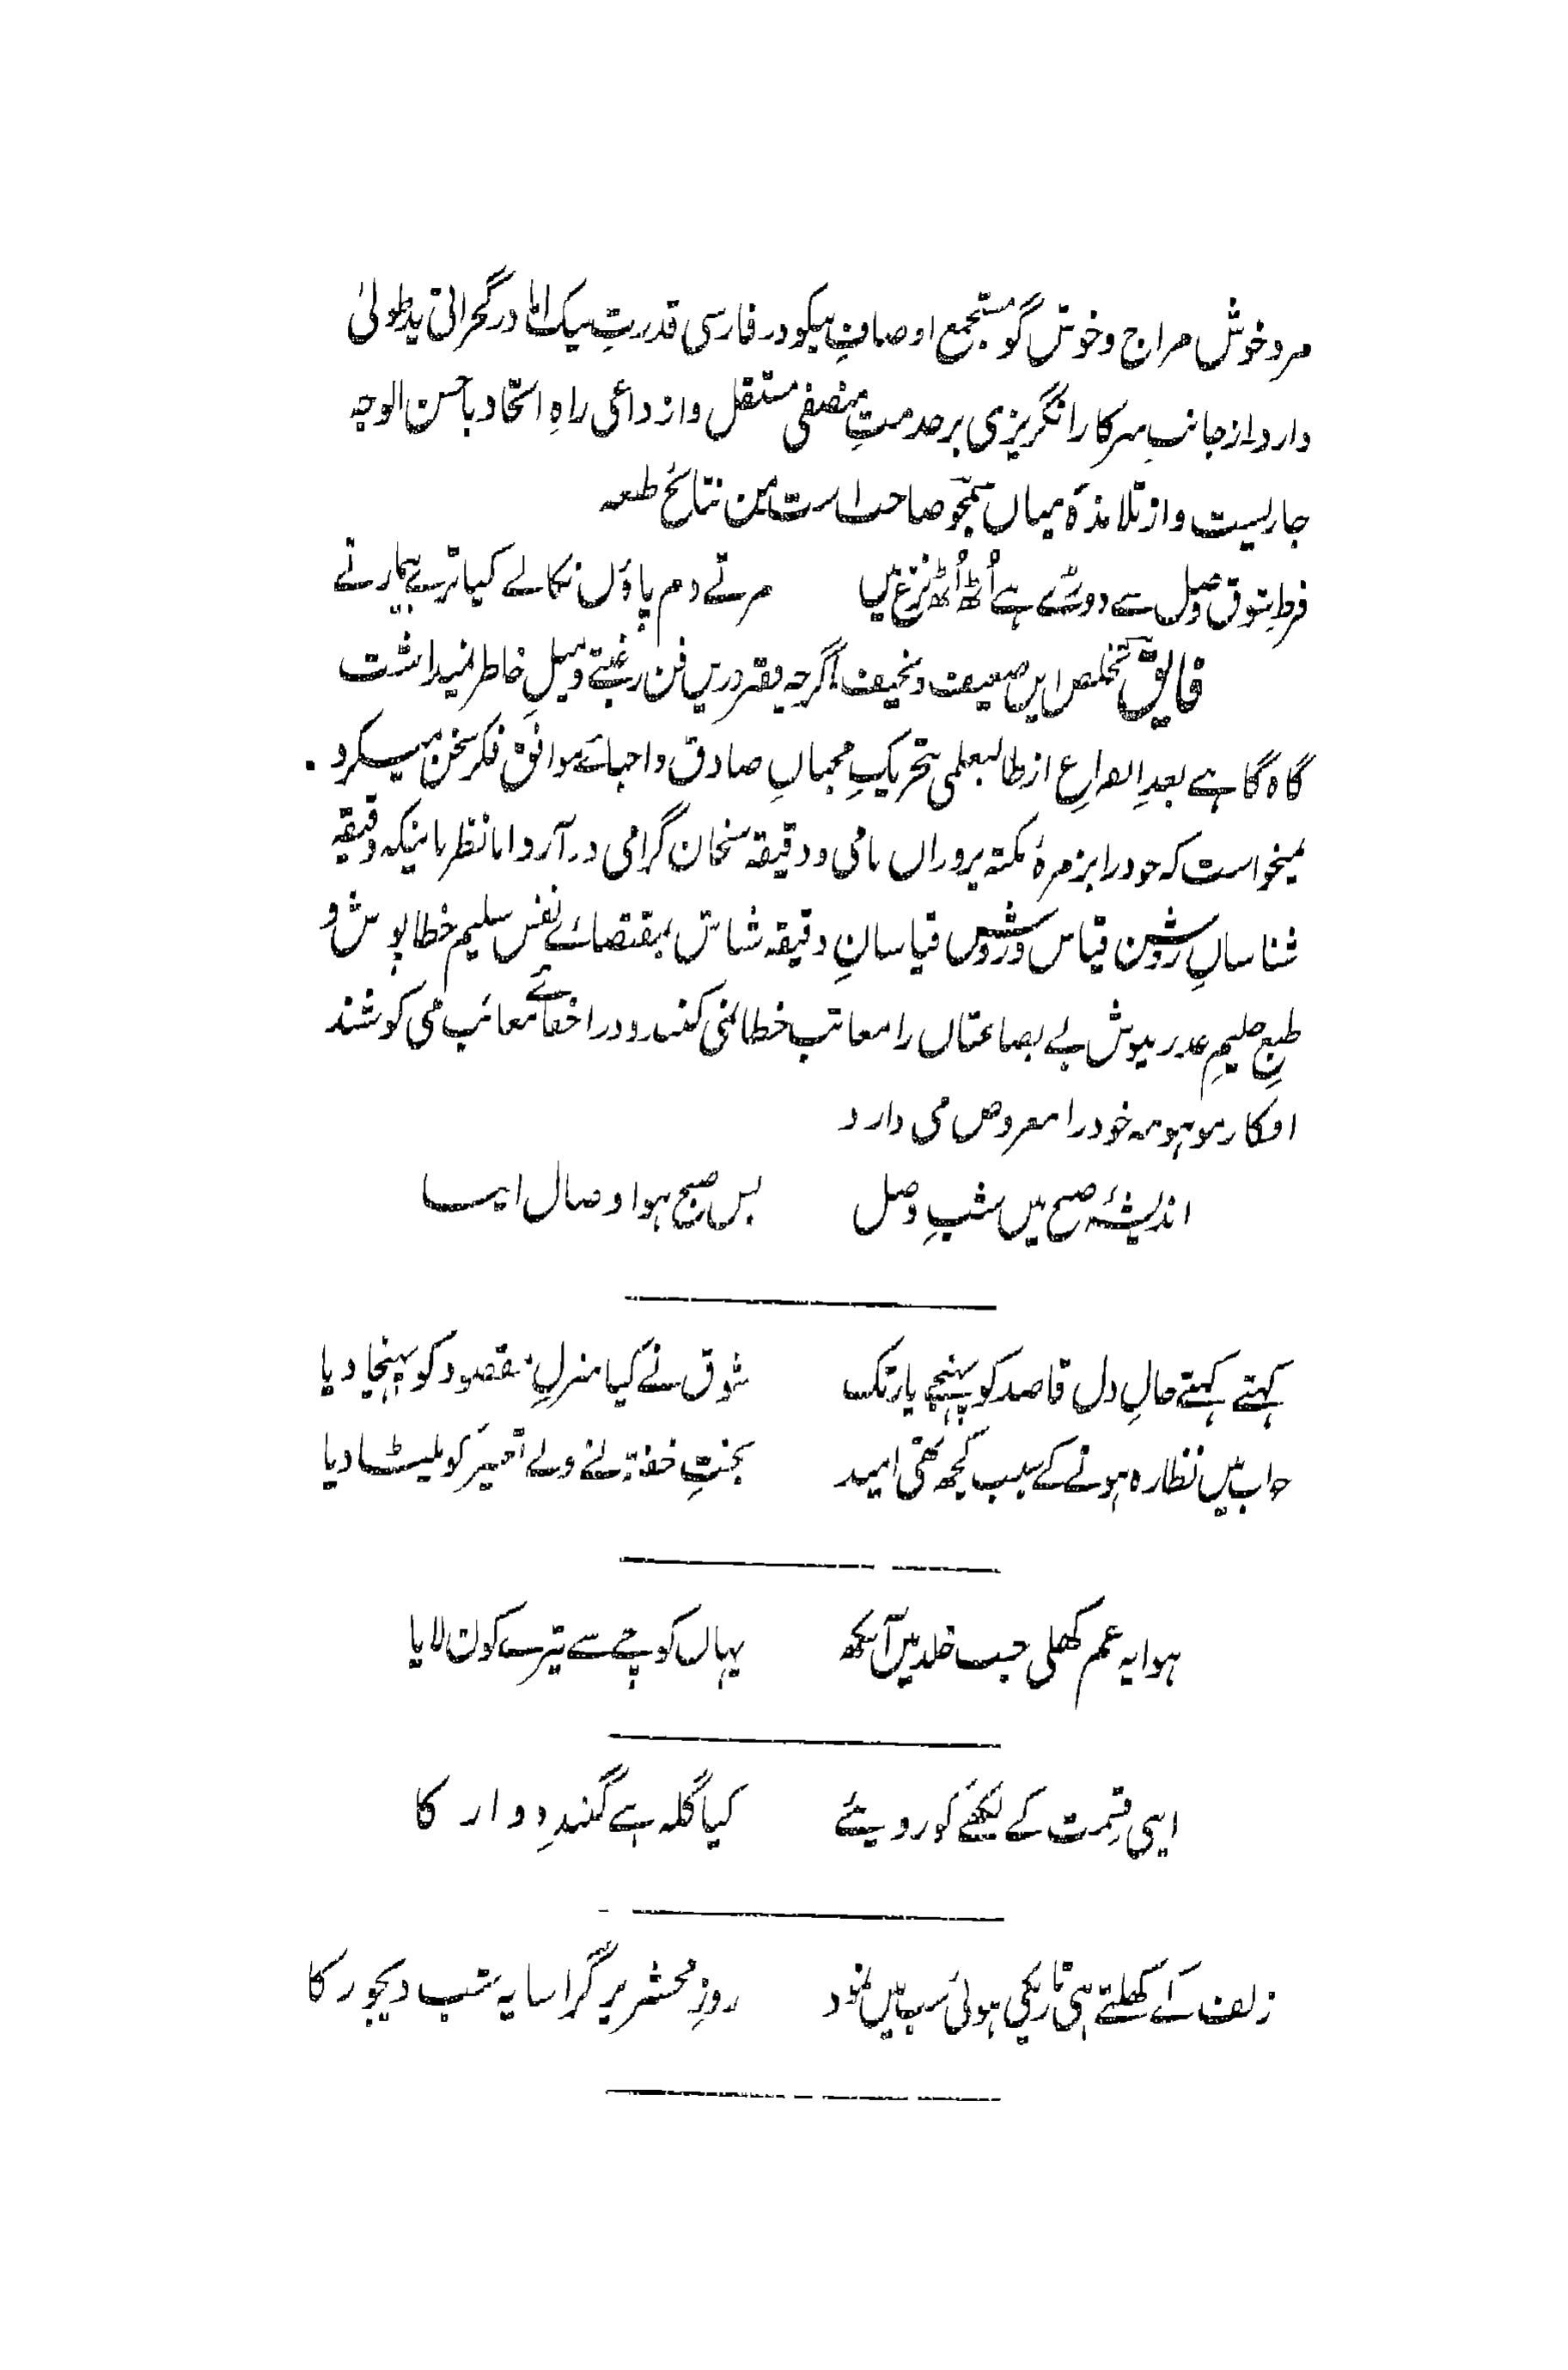 مرد خوش مزاج و خوش گو مستجمع اوصافِ نیکو در فارسی قدرتِ یکتا در گجراتی یدِ طولیٰ
دارد از جانبِ سرکار انگریزی بر خدمتِ منصفی مستقل و از داعی راہِ اتحاد باحسن الوجہ
جاریست و از تلامذۂ میاں سمجھو صاحب است من نتائج طبعہ
فرطِ شوق وصل سے دوڑے ہے اُٹھ اُٹھ نزع میں مرتے دم پاؤں نکالے کیا ترے بیمار نے
فایق تخلص ایں ضعیف و نحیف اگرچہ فقیر دریں فن رغبتے و میلِ خاطر نمیداشت
گاہ گاہے بعدِ انفراغِ از طالبعلمی بتحریکِ محبانِ صادق و احبائے موافق فکر سخن میکرد۔
نمیخواست کہ خود را بزمرۂ نکتہ پروراں نامی و دقیقہ سنجان گرامی در آرد اما نظر باینکہ دقیقہ
شناسانِ روشن قیاس و روشن قیاسانِ دقیقہ شناس بمقتضائے نفس سلیم خطا پوش و
طبعِ حلیمِ عذر نیوش بے بضاعتاں را معاتب خطا نمی کنند و در اخفائے معائب می کوشند
افکار موہومہ خود را معروض می دارد
اندیشۂ صبح میں شبِ وصل بس صبح ہوا وصال اپنا
کہتے کہتے حالِ دل قاصد کو پہنچے یار تک شوق نے کیا منزلِ مقصود کو پہنچا دیا
خواب میں نظارہ ہونے کے سبب کچھ تھی امید بختِ خفتہ نے ولے تعبیر کو پلٹا دیا
ہوا یہ غم کھلی جب خلد میں آنکھ یہاں کوچے سے تیرے کون لایا
اپنی قسمت کے لکھے کو رویئے کیا گلہ ہے گنبدِ دوار کا
زلف کے کھلتے ہی تاریکی ہوئی سب میں نمود روزِ محشر پر گرا سایہ شب دیجور کا